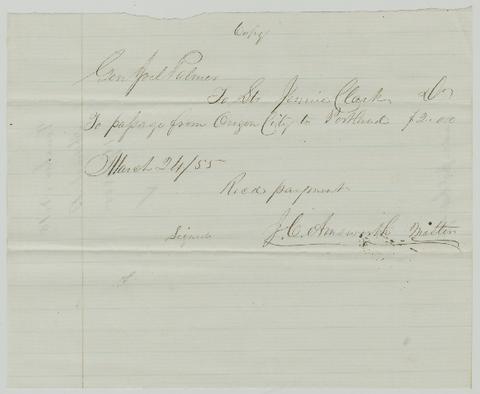 Copy
Genl Joel Palmer
To Str Jennie Clark Dr
To passage from Oregon City to Portland $2.00
March 24/55
Recd payment
Signed J. C. Ainsworth Master